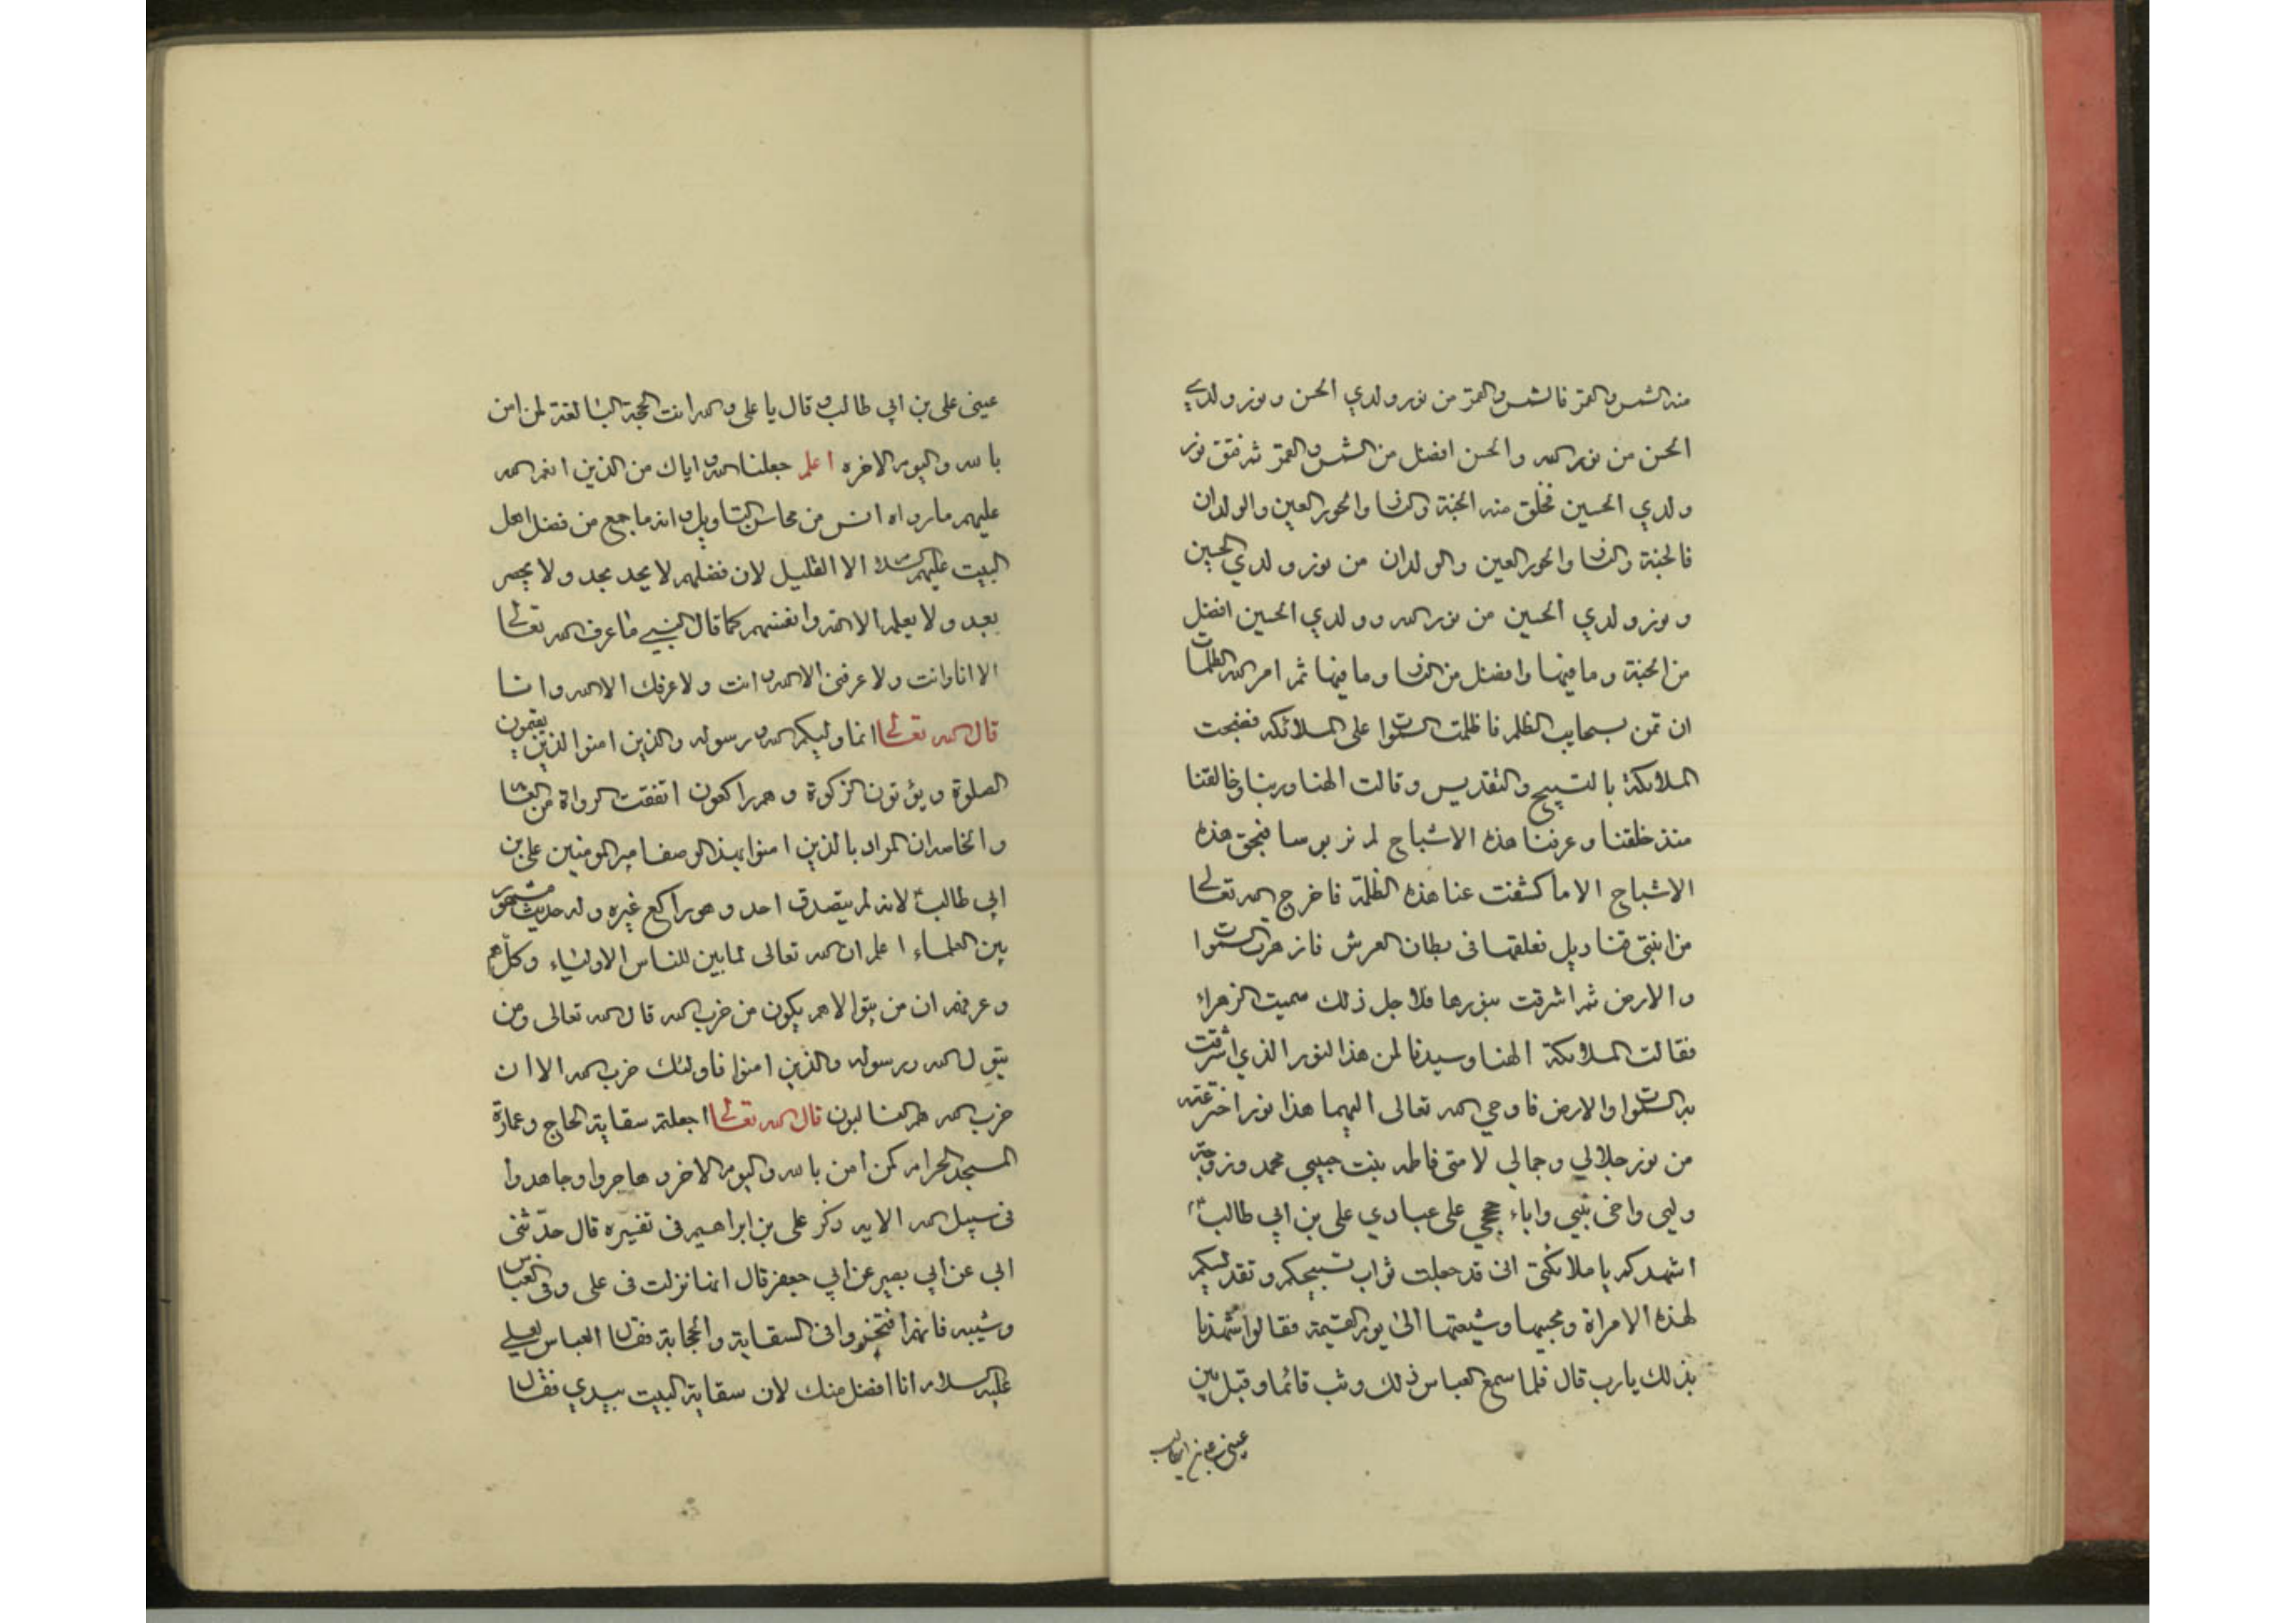 منه الشمس والقمر فالشمس والقمر من نور ولدي الحسن ونور ولدي
الحسن من نور الله والحسن افضل من الشمس والقمر ثم فتق نور
ولدي الحسين فخلق منه الجنة والدنيا والحور العين والولدان
فالجنة والدنيا والحور العين والولدان من نور ولدي الحسين
ونور ولدي الحسين من نور الله وولدي الحسين افضل
من الجنة وما فيها وافضل من الدنيا وما فيها ثم امر الله الظلمات
ان تمر بسحايب الظلم فاظلمت السموات على الملائكه فضجت
الملائكة بالتسبيح والتقديس وقالت الهنا وربنا وخالقنا
منذ خلقتنا وعرفتنا هذه الاشباح لم نر بوسا فبحق هذه
الاشباح الا ما كشفت عنا هذه الظلمة فاخرج الله تعالى
من ابنتي قناديل فعلقها في بطان العرش فازهرت السموات
والارض ثم اشرقت بنورها فلاجل ذلك سميت الزهراء
فقالت الملائكة الهنا وسيدنا لمن هذا النور الذي اشرقت
به السموات والارض فاوحي الله تعالى اليها هذا نور اخترعته
من نور جلالي وجمالي لامتي فاطمه بنت حبيبي محمد وزوجة
وليي واخي نبيي واباء حججي على عبادي علي بن ابي طالب ع
اشهدكم يا ملائكتي اني قد جعلت ثواب تسبيحكم وتقديسكم
لهذه الامراة ومحبيها وشيعتها الى يوم القيمة فقالوا شهدنا
بذلك يارب قال فلما سمع العباس ذلك وثب قائما وقبل بين
عيني علي بن ابي طالب
عيني علي بن ابي طالب وقال يا علي والله انت الحجة البالغة لمن امن
بالله واليوم الاخره اعلم جعلنا الله واياك من الذين انعم الله
عليهم ما رواه انس من محاسن التاويل وانه ما جمع من فضل اهل
البيت عليهم السلام الا القليل لان فضلهم لا يحد بحد ولا يحصر
بعد ولا يعلمه الا الله وانفسهم كما قال النبي ما عرف الله تعالى
الا انا وانت ولا عرفني الا الله وانت ولا عرفك الا الله وانا
قال الله تعالى انما وليكم الله ورسوله والذين امنوا الذين يقيمون
الصلوة ويؤتون الزكوة وهم راكعون اتفقت الرواة من العام
والخاص ان المراد بالذين امنوا بهذا الوصف امير المومنين علي بن
ابي طالب ع لانه لم يتصدق احد وهو راكع غيره وله حديث مشهور
بين العلماء اعلم ان الله تعالى لما بين للناس الاولياء وكلهم
وعرفهم ان من يتوالاهم يكون من حزب الله قال الله تعالى ومن
يتول الله ورسوله والذين امنوا فاولئك حزب الله الا ان
حزب الله هم الغالبون قال الله تعالى اجعلتم سقاية الحاج وعمارة
المسجد الحرام كمن امن بالله واليوم الاخر وهاجروا وجاهدوا
في سبيل الله الايه ذكر علي بن ابراهيم في تفسيره قال حدثني
ابي عن ابي بصير عن ابي جعفر قال انها نزلت في علي وفي العباس
وشيبه فانهم افتخروا في السقاية والحجابة فقال العباس لعلي
عليه السلام انا افضل منك لان سقاية البيت بيدي فقال